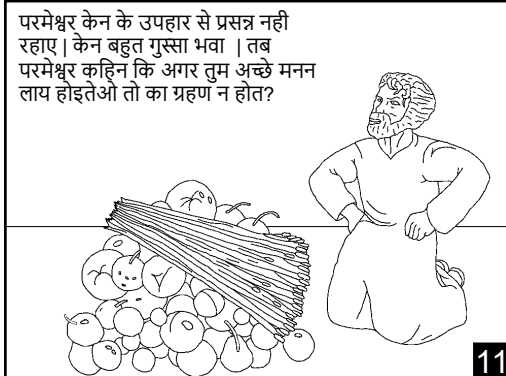 परमेश्वर केन के उपहार से प्रसन्न नही
रहाए | केन बहुत गुस्सा भवा | तब
परमेश्वर कहिन कि अगर तुम अच्छे मनन
लाय होइतेओ तो का ग्रहण न होत?
11